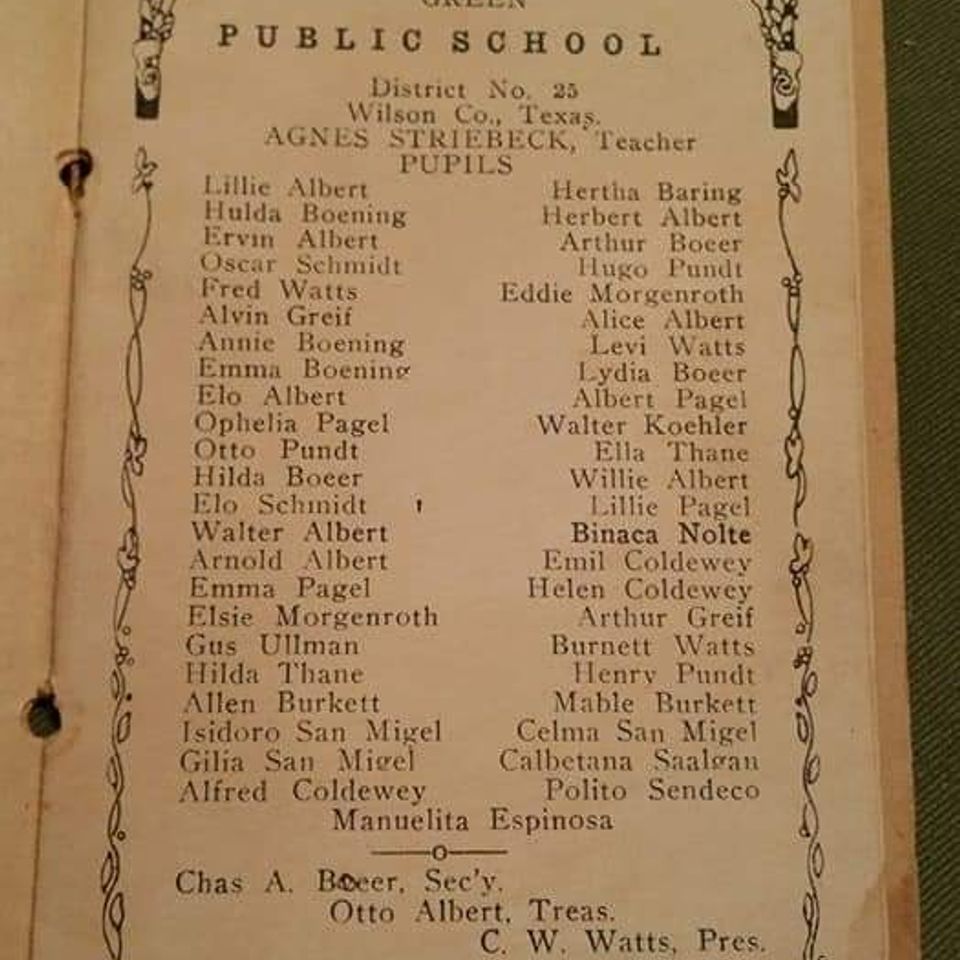 GREEN
PUBLIC SCHOOL
District No. 25
Wilson Co., Texas.
AGNES STRIEBECK, Teacher
PUPILS
Lillie Albert Hertha Baring
Hulda Boening Herbert Albert
Ervin Albert Arthur Boeer
Oscar Schmidt Hugo Pundt
Fred Watts Eddie Morgenroth
Alvin Greif Alice Albert
Annie Boening Levi Watts
Emma Boening Lydia Boeer
Elo Albert Albert Pagel
Ophelia Pagel Walter Koehler
Otto Pundt Ella Thane
Hilda Boeer Willie Albert
Elo Schmidt Lillie Pagel
Walter Albert Binaca Nolte
Arnold Albert Emil Coldewey
Emma Pagel Helen Coldewey
Elsie Morgenroth Arthur Greif
Gus Ullman Burnett Watts
Hilda Thane Henry Pundt
Allen Burkett Mable Burkett
Isidoro San Migel Celma San Migel
Gilia San Migel Calbetana Saalgan
Alfred Coldewey Polito Sendeco
Manuelita Espinosa
Chas A. Boeer, Sec'y.
Otto Albert, Treas.
C. W. Watts, Pres.